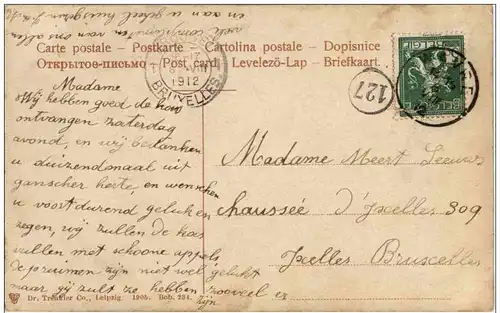 en aan u geheel huisgezin
veel complimenten van ons allen
Carte postale – Postkarte – Cartolina postale – Dopisnice
Открытое-письмо – Post card – Levelező-Lap – Briefkaart.
1912
BRUXELLES
127
Madame
Wij hebben goed de
ontvangen zaterdag
avond, en wij bedanken
u duizendmaal uit
ganscher herte, en wenschen
u voortdurend geluk en
zegen, wij zullen de
vullen met schoone appels,
de pruimen zijn niet wel gelukt
maar gij zult ze hebben zooveel er
zijn
Madame Meert Leeuws
chaussée d'Ixelles 309
Ixelles Bruxelles
Dr. Trenkler Co., Leipzig. 1905. Bob. 234.